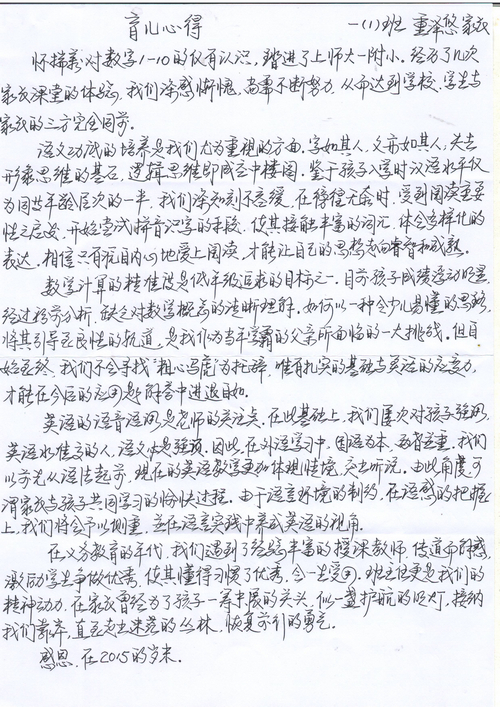 育儿心得
一(1)班 董泽悠家长
怀揣着对数字1-10的仅有认识，踏进了上师大一附小。经历了几次
家长课堂的体验，我们深感惭愧，尚需不断努力，从而达到学校、学生与
家长的三方完全同步。
语文功试的培养是我们尤为重视的方面。字如其人，文亦如其人，失去
形象思维的基石，逻辑思维即成空中楼阁。鉴于孩子入学时汉语水平仅
为同龄年龄层次的一半，我们深知刻不容缓，在彷徨无奈时，受到阅读重要
性之启发，开始尝试拼音识字的手段，使其接触丰富的词汇，体会多样化的
表达。相信只有发自内心地爱上阅读，才能让自己的思想走向睿智和成熟。
数学计算的精准度是低年级追求的目标之一。目前孩子成绩浮动明显，
经过几步分析，缺乏对数学概念的清晰理解。如何以一种令少儿易懂的思路，
将其引导至良性的轨道，是我作为当年学霸的父亲所面临的一大挑战。但自
始至终，我们不会寻找"粗心马虎"为托辞，唯有扎实的基础与灵活的应变力，
才能在今后的应用题解答中进退自如。
英语的语音语调是老师的关注点。在此基础上，我们屡次对孩子强调，
英语水准高的人，语文必是强项。因此，在外语学习中，国语为本，两者并重。我们
以首先从语法起步，现在的英语教学更加体现情境、交流听说。由此角度可
谓家长与孩子共同学习的愉快过程。由于语言环境的制约，在语感的把握
上，我们将会予以侧重，并在语言实践中养成英语的视角。
在义务教育的年代，我们遇到了经验丰富的授课教师，传道而解惑，
激励学生争做优秀，使其懂得习惯了优秀，会一生受用。班主任更是我们的
精神动力，在家长曾经为了孩子一筹中展的关头，似一盏护航的明灯，接纳
我们靠岸，直至走出迷茫的丛林，恢复前行的勇气。
感恩，在2015的岁末。